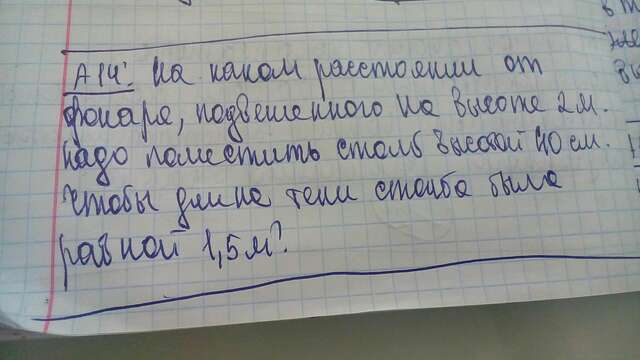 А14: На каком расстоянии от
фонаря, подвешенного на высоте 2 м.
надо поместить столб высотой 40 см.
чтобы длина тени столба была
равной 1,5 м?